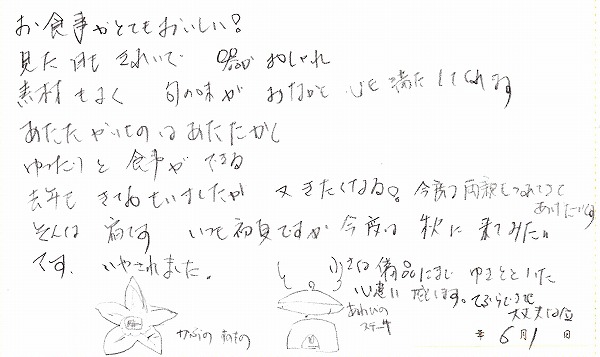 お食事がとてもおいしい!
見た目もきれいで 器がおしゃれ
素材もよく 旬の味が おなかも 心も満たしてくれる
あたたかいものはあたたかく
ゆったりと食事ができる
去年も きておもいましたが 又きたくなる。今度は両親もつれてきて
あげたいです
そんな 宿です いつも初夏ですが今度は 秋に来てみたい
です。いやされました。
備品にまで ゆきとどいた
心遣い 感じます。てぶらでも
大丈夫な位
あわびの
ステーキ
6月1日